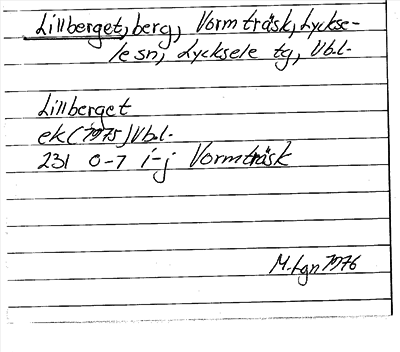 Lillberget, berg, Vormträsk, Lyckse-
le sn, Lycksele tg, Vb.l.
Lillberget
ek (1975) Vb.l.
231 0-7 i-j Vormträsk
M.Lgn 1976